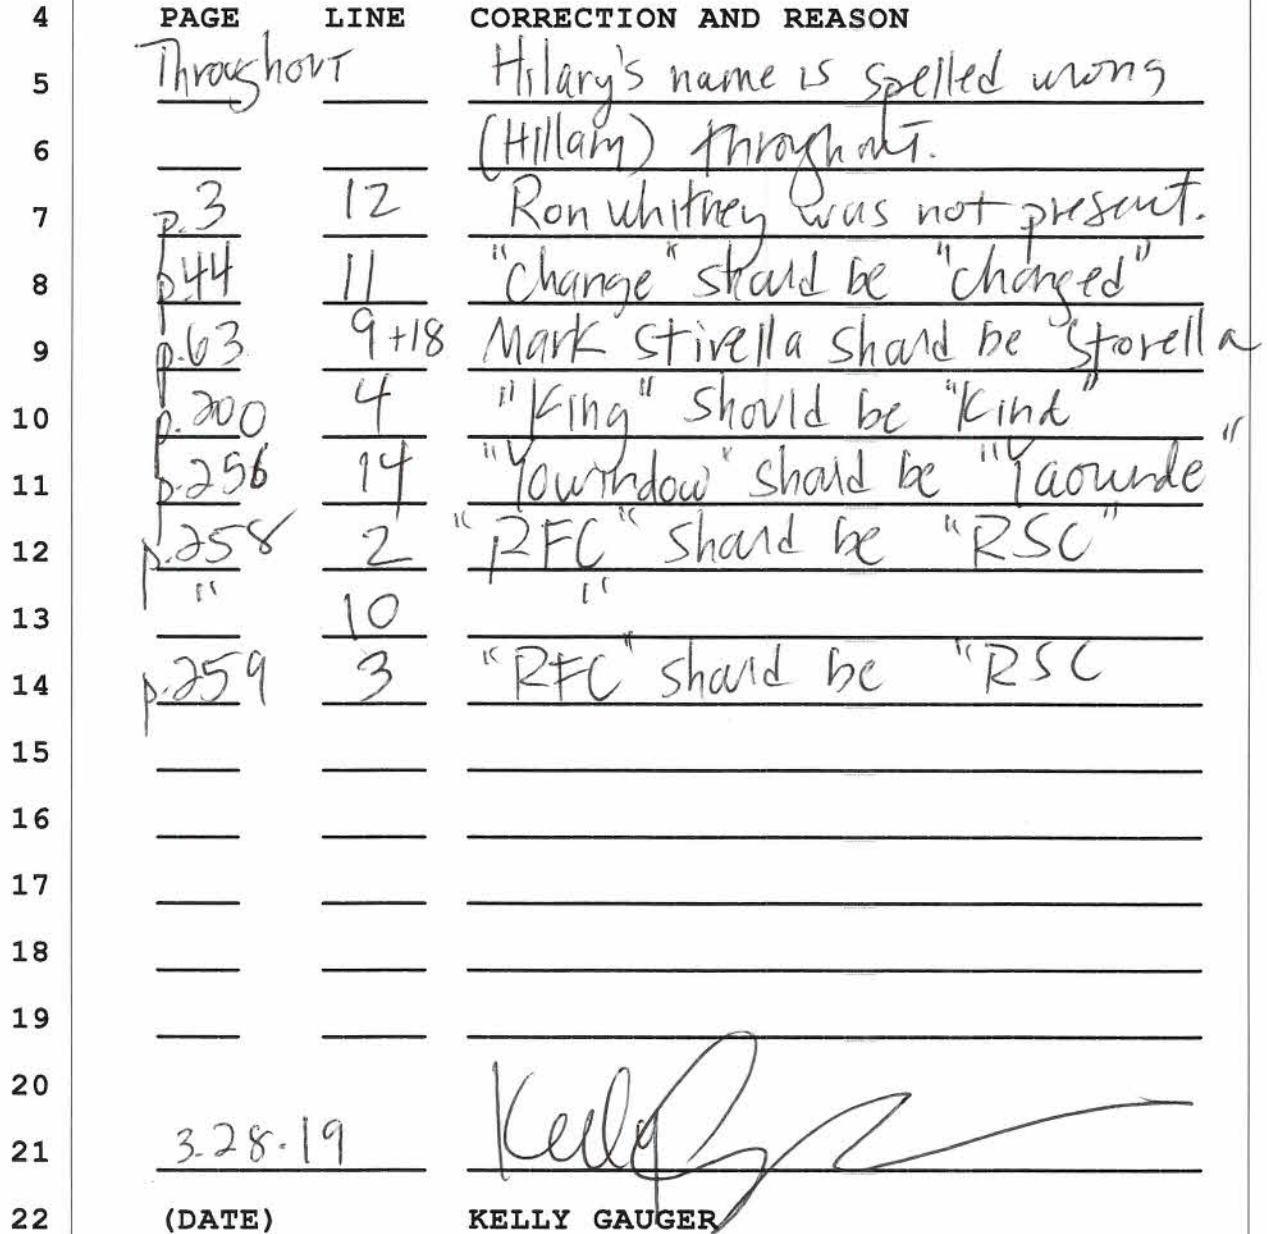 4 PAGE LINE CORRECTION AND REASON
5 Throughout Hilary's name is spelled wrong
6 (Hillary) throughout.
7 p.3 12 Ron Whitney was not present.
8 p.44 11 "change" should be "changed"
9 p.63 9+18 Mark Stirella should be "Storella
10 p.200 4 "King" should be "Kind"
11 p.256 14 "Yowindow" should be "Yaounde"
12 p.258 2 "RFC" should be "RSC"
13 " 10 "
14 p.259 3 "RFC" should be "RSC
15
16
17
18
19
20
21 3.28.19 Kelly
22 (DATE) KELLY GAUGER